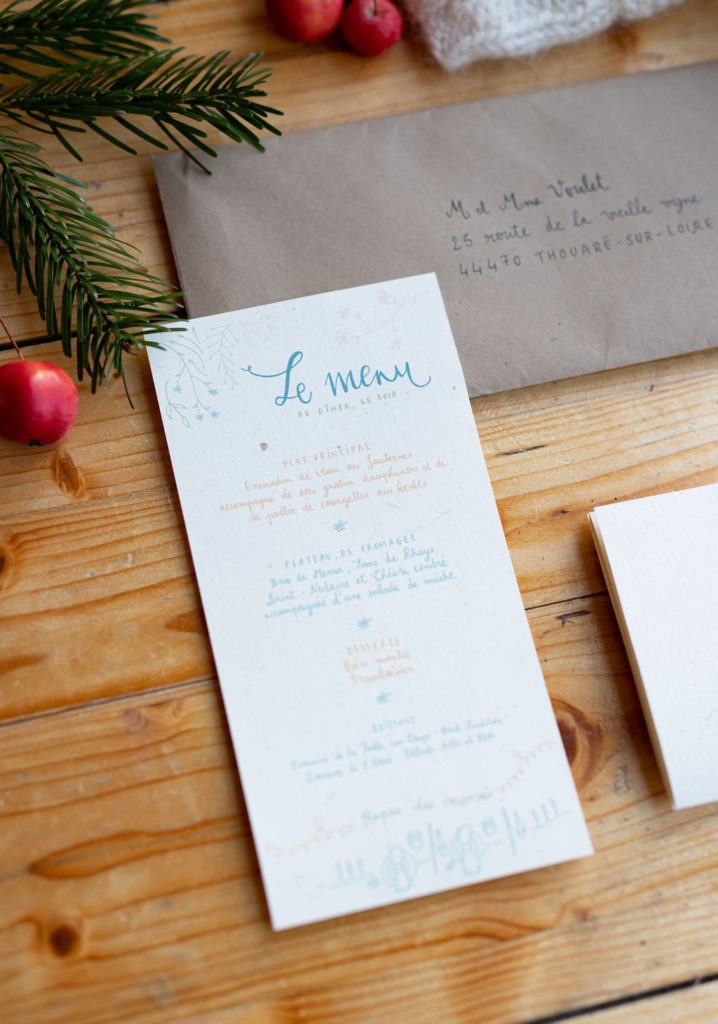 M et Mme Voulet
25 route de la vieille vigne
44470 THOUARÉ-SUR-LOIRE
Le menu
AU DÎNER, LE SOIR...
PLAT PRINCIPAL
Grenadin de veau au Sauternes,
accompagné de son gratin dauphinois et de
sa poêlée de courgettes aux herbes
PLATEAU DE FROMAGES
Brie de Meaux, Tome de Rhuys,
Saint-Nectaire et Chèvre cendré
accompagnés d'une salade de mâche
DESSERTS
Pièce montée
Framboisier
Domaine de la
Domaine de
Repas des mariés